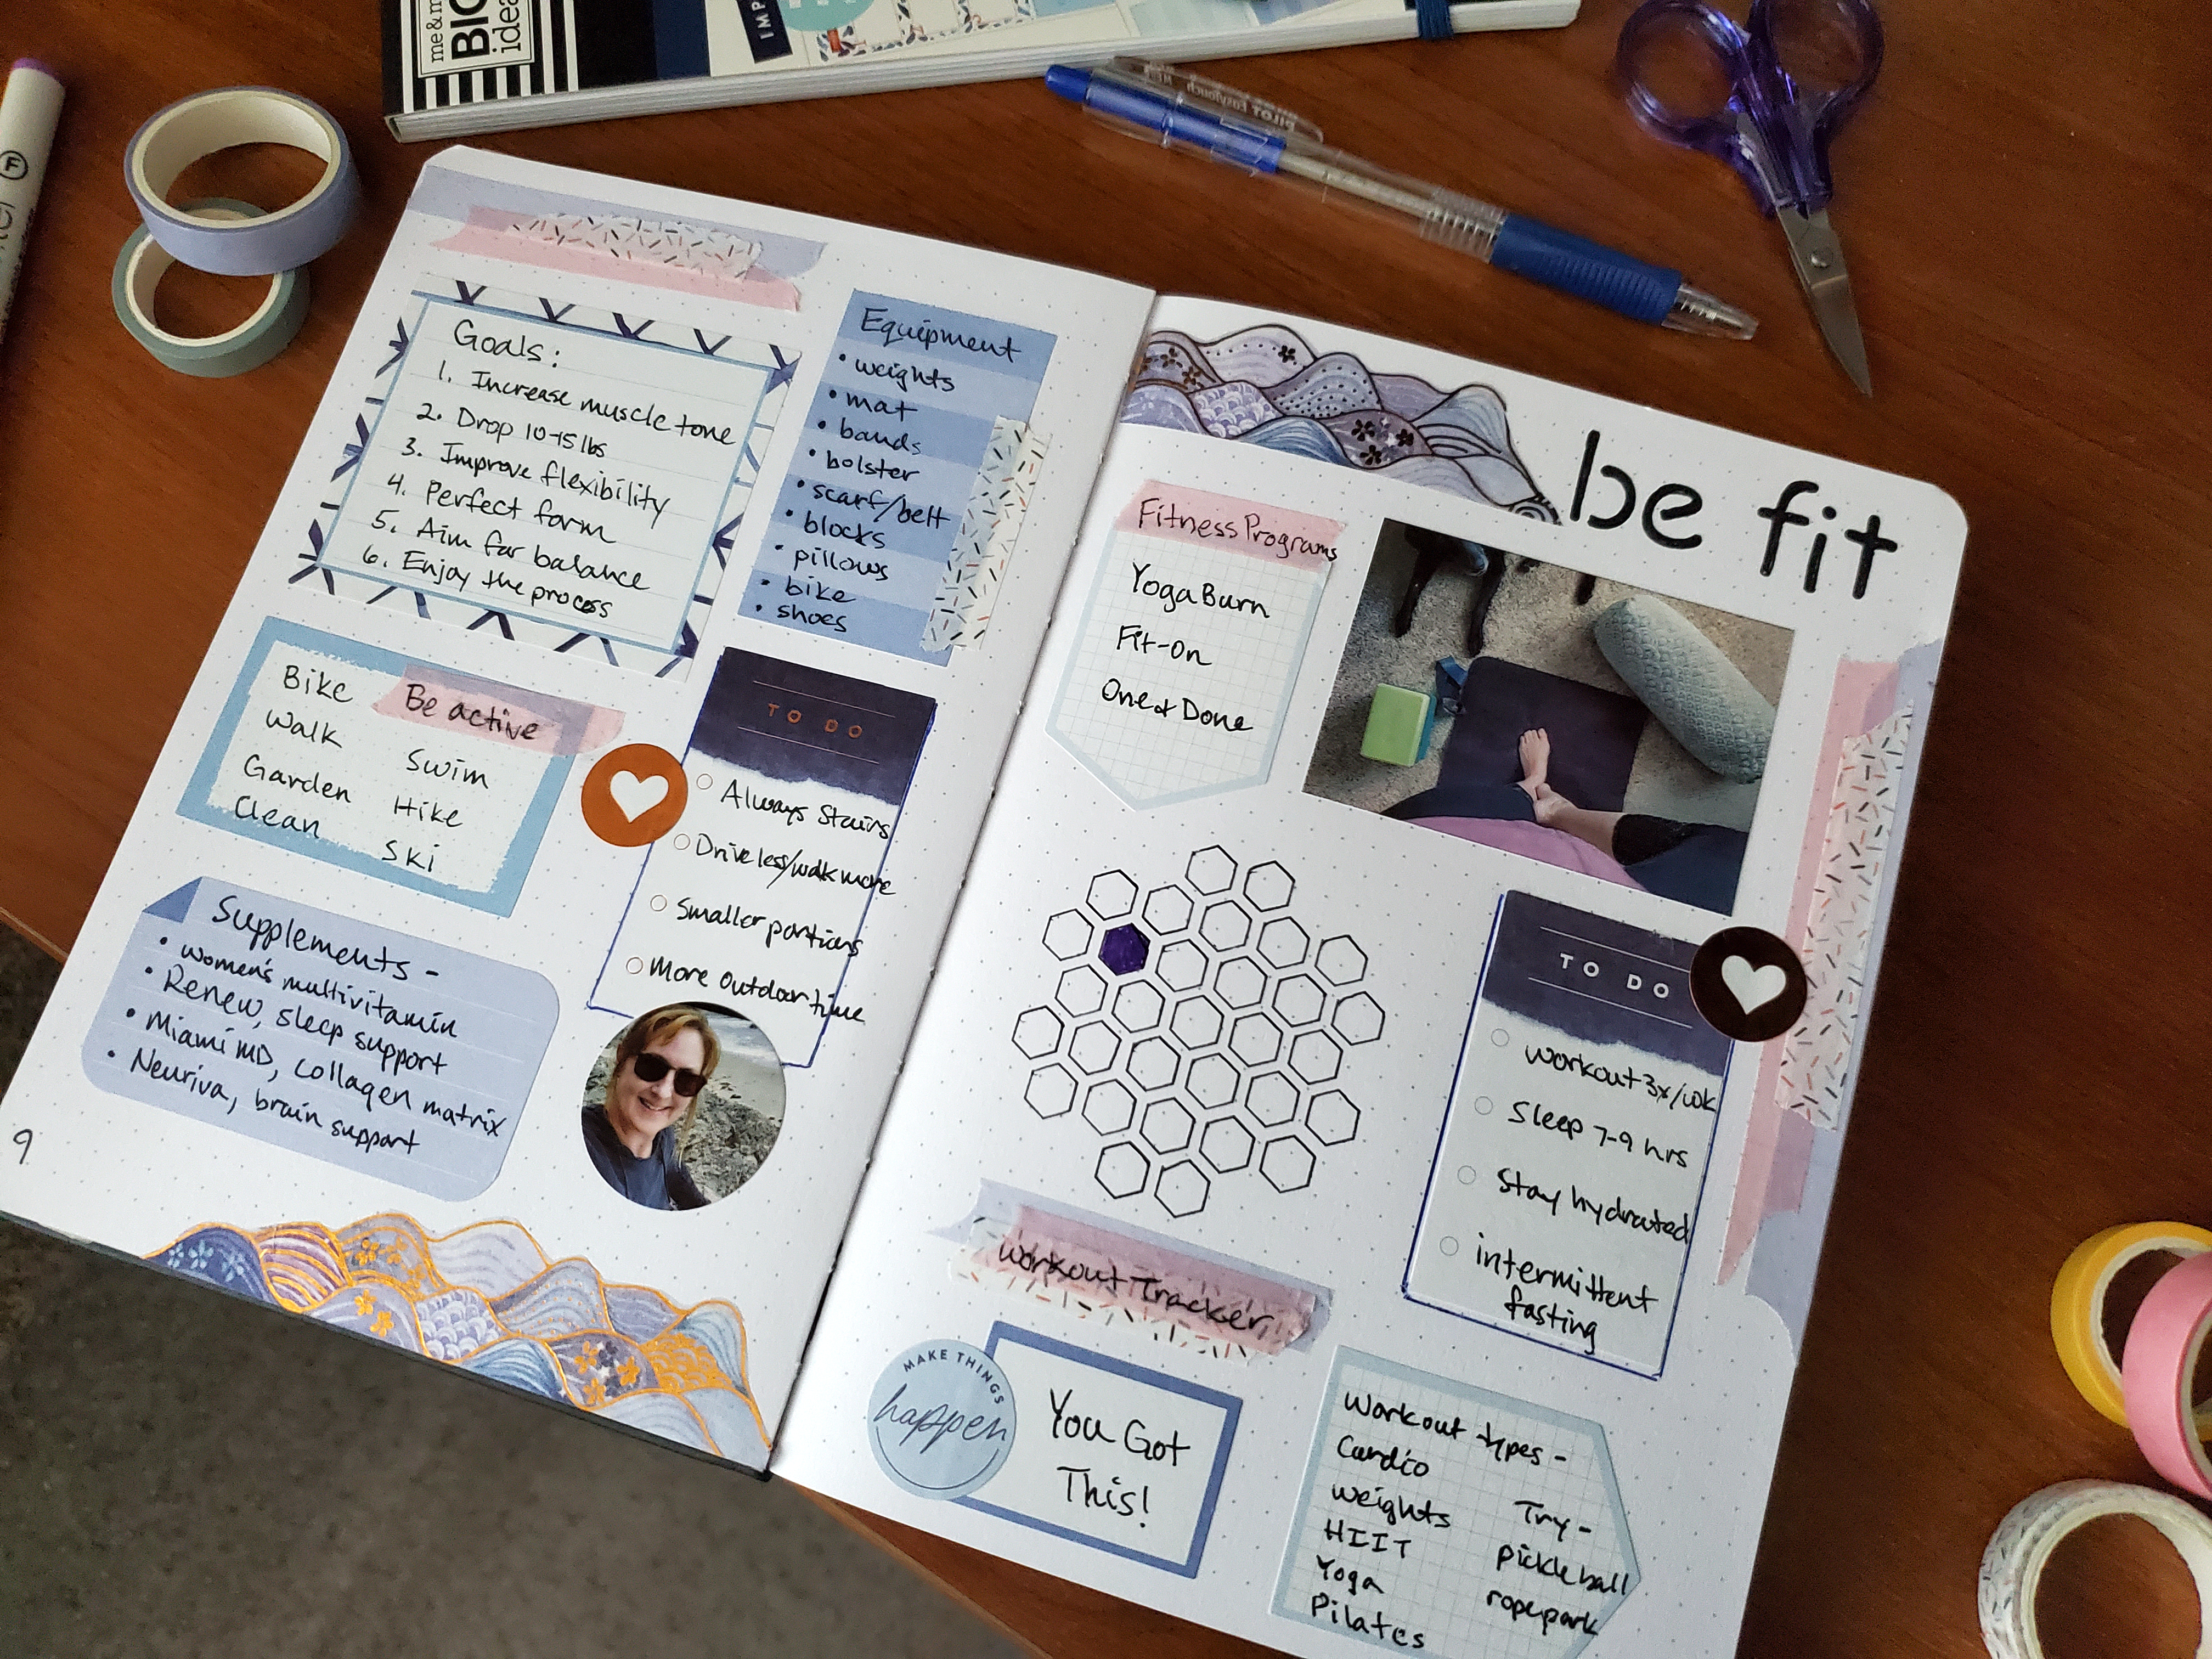 me & my
BIG
ideas
IMP
F
PILOT EasyTouch
Goals:
1. Increase muscle tone
2. Drop 10-15 lbs
3. Improve flexibility
4. Perfect form
5. Aim for balance
6. Enjoy the process
Equipment
• weights
• mat
• bands
• bolster
• scarf/belt
• blocks
• pillows
• bike
• shoes
Be active
Bike
Walk
Garden
Clean
Swim
Hike
Ski
TO DO
Always Stairs
Drive less/walk more
Smaller portions
More outdoor time
Supplements -
• women's multivitamin
• Renew, sleep support
• Miami MD, collagen matrix
• Neuriva, brain support
9
be fit
Fitness Programs
Yoga Burn
Fit-On
One & Done
TO DO
Workout 3x/wk
Sleep 7-9 hrs
Stay hydrated
intermittent
fasting
Workout Tracker
MAKE THINGS
happen
You Got
This!
Workout types -
Cardio
weights
HIIT
Yoga
Pilates
Try -
pickleball
ropepark